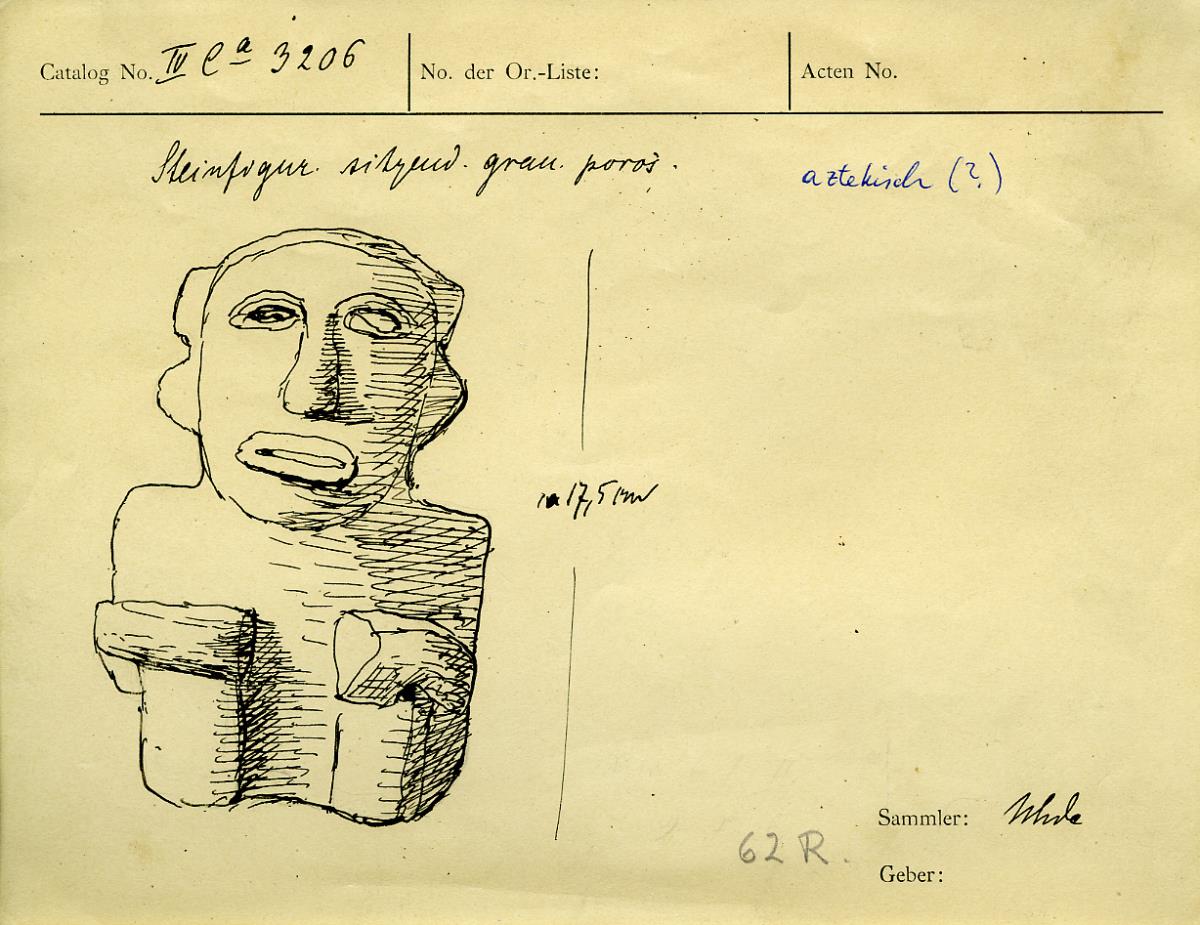 Catalog No. IV Ca 3206
No. der Or.-Liste:
Acten No.
Steinfigur. sitzend. grau. porös.
aztekisch (?)
17,5 cm
Sammler: Uhde
62 R.
Geber: